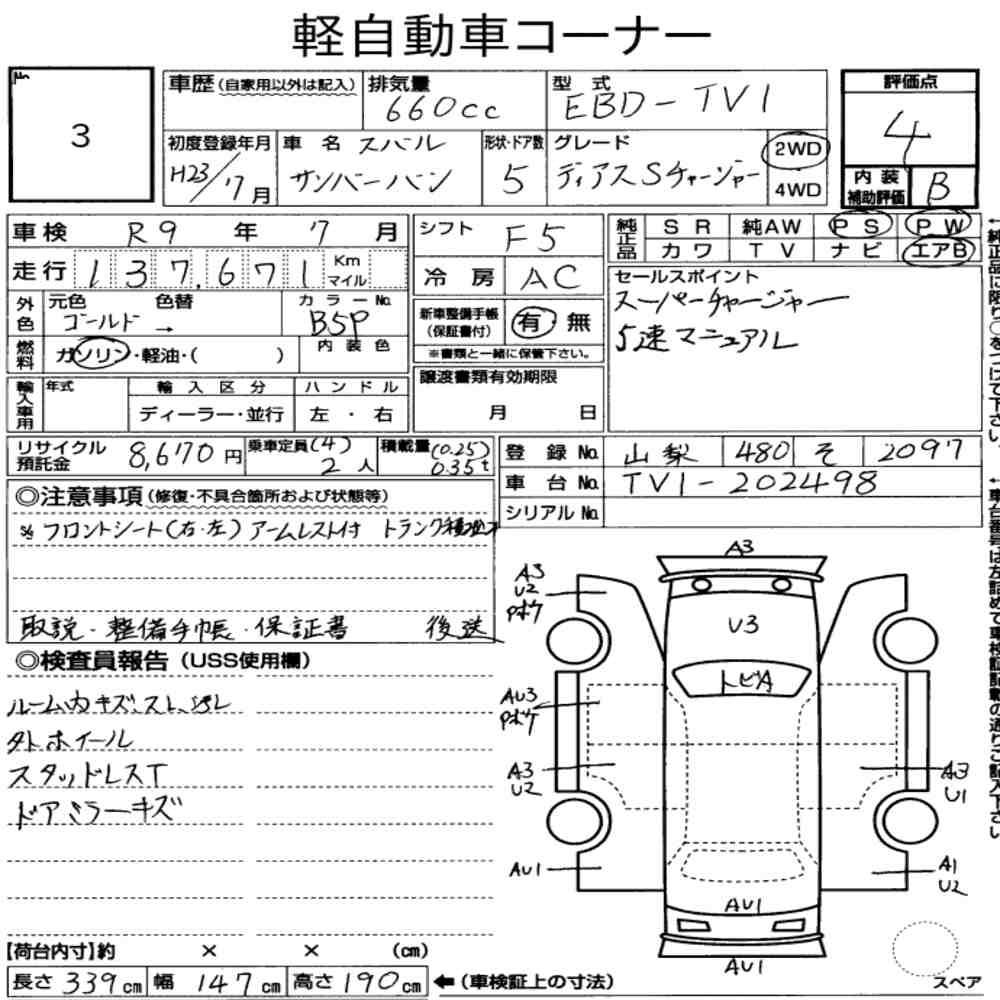 軽自動車コーナー
No.
3
車歴(自家用以外は記入) 排気量 660cc 型式 EBD-TV1
評価点 4
初度登録年月 H23/7月 車名 スバル サンバーバン 形状・ドア数 5 グレード ディアスSチャージャー 2WD 4WD
内装補助評価 B
車検 R9 年 7 月
走行 137,671 Km マイル
シフト F5
冷房 AC
純正品 SR 純AW PS PW
カワ TV ナビ エアB
外色 元色 ゴールド 色替 → カラーNo. B5P
燃料 ガソリン・軽油・( ) 内装色
新車整備手帳(保証書付) 有・無
※書類と一緒に保管下さい。
セールスポイント
スーパーチャージャー
5速マニュアル
輸入車用 年式 輸入区分 ハンドル
ディーラー・並行 左・右
譲渡書類有効期限
月 日
リサイクル預託金 8,670円 乗車定員(4) 2人 積載量(0.25) 0.35t
登録No. 山梨 480 そ 2097
車台No. TV1-202498
シリアルNo.
◎注意事項(修復・不具合箇所および状態等)
※フロントシート(右・左)アームレスト付 トランク
取説・整備手帳・保証書 後送
◎検査員報告(USS使用欄)
ルーム内キズ、スレ、汚レ
タトホイール
スタッドレスT
ドアミラーキズ
A3
A3
U2
Pボケ
U3
トビA
AU3
Pボケ
A3
U2
A3
U1
AU1
A1
U2
AU1
AU1
スペア
【荷台内寸】約 × × (cm)
長さ 339cm 幅 147cm 高さ 190cm ←(車検証上の寸法)
←純正品に限り○をつけて下さい。
←車台番号は左詰めで車検証記載の通りご記入下さい